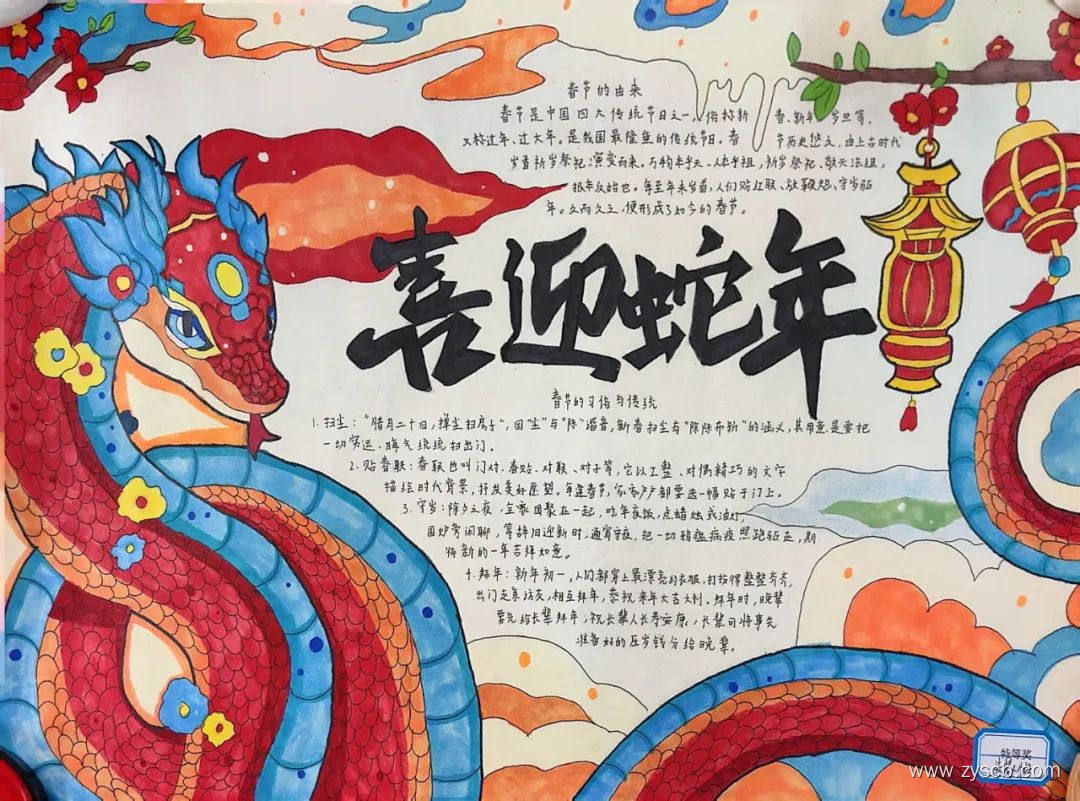 春节的由来
春节是中国四大传统节日之一,俗称新春、新年、岁旦等,
又称过年、过大年。是我国最隆重的传统节日。春节历史悠久,由上古时代
岁首祈岁祭祀演变而来。万物本乎天、人本乎祖,祈岁祭祀、敬天法祖,
报本反始也。每至年末岁首,人们贴红联、放鞭炮、守岁驱
年。久而久之,便形成了如今的春节。
喜迎蛇年
春节的习俗与传统
1. 扫尘:“腊月二十四,掸尘扫房子”,因“尘”与“陈”谐音,新春扫尘有“除陈布新”的涵义,其用意是要把
一切穷运、晦气统统扫出门。
2. 贴春联:春联也叫门对、春贴、对联、对子等,它以工整、对偶精巧的文字
描绘时代背景,抒发美好愿望。每逢春节,家家户户都要选一幅贴于门上。
3. 守岁:除夕之夜,全家团聚在一起,吃年夜饭,点蜡烛或油灯,
围炉旁闲聊,等辞旧迎新时,通宵守夜,把一切邪瘟病疫照跑驱走,期
待新的一年吉祥如意。
4. 拜年:新年初一,人们都穿上最漂亮的衣服,打扮得整整齐齐,
出门走亲访友,相互拜年,恭祝来年大吉大利。拜年时,晚辈
要先给长辈拜年,祝长辈人长寿安康,长辈可将事先
准备好的压岁钱分给晚辈。
特等奖
www.zyscb.com